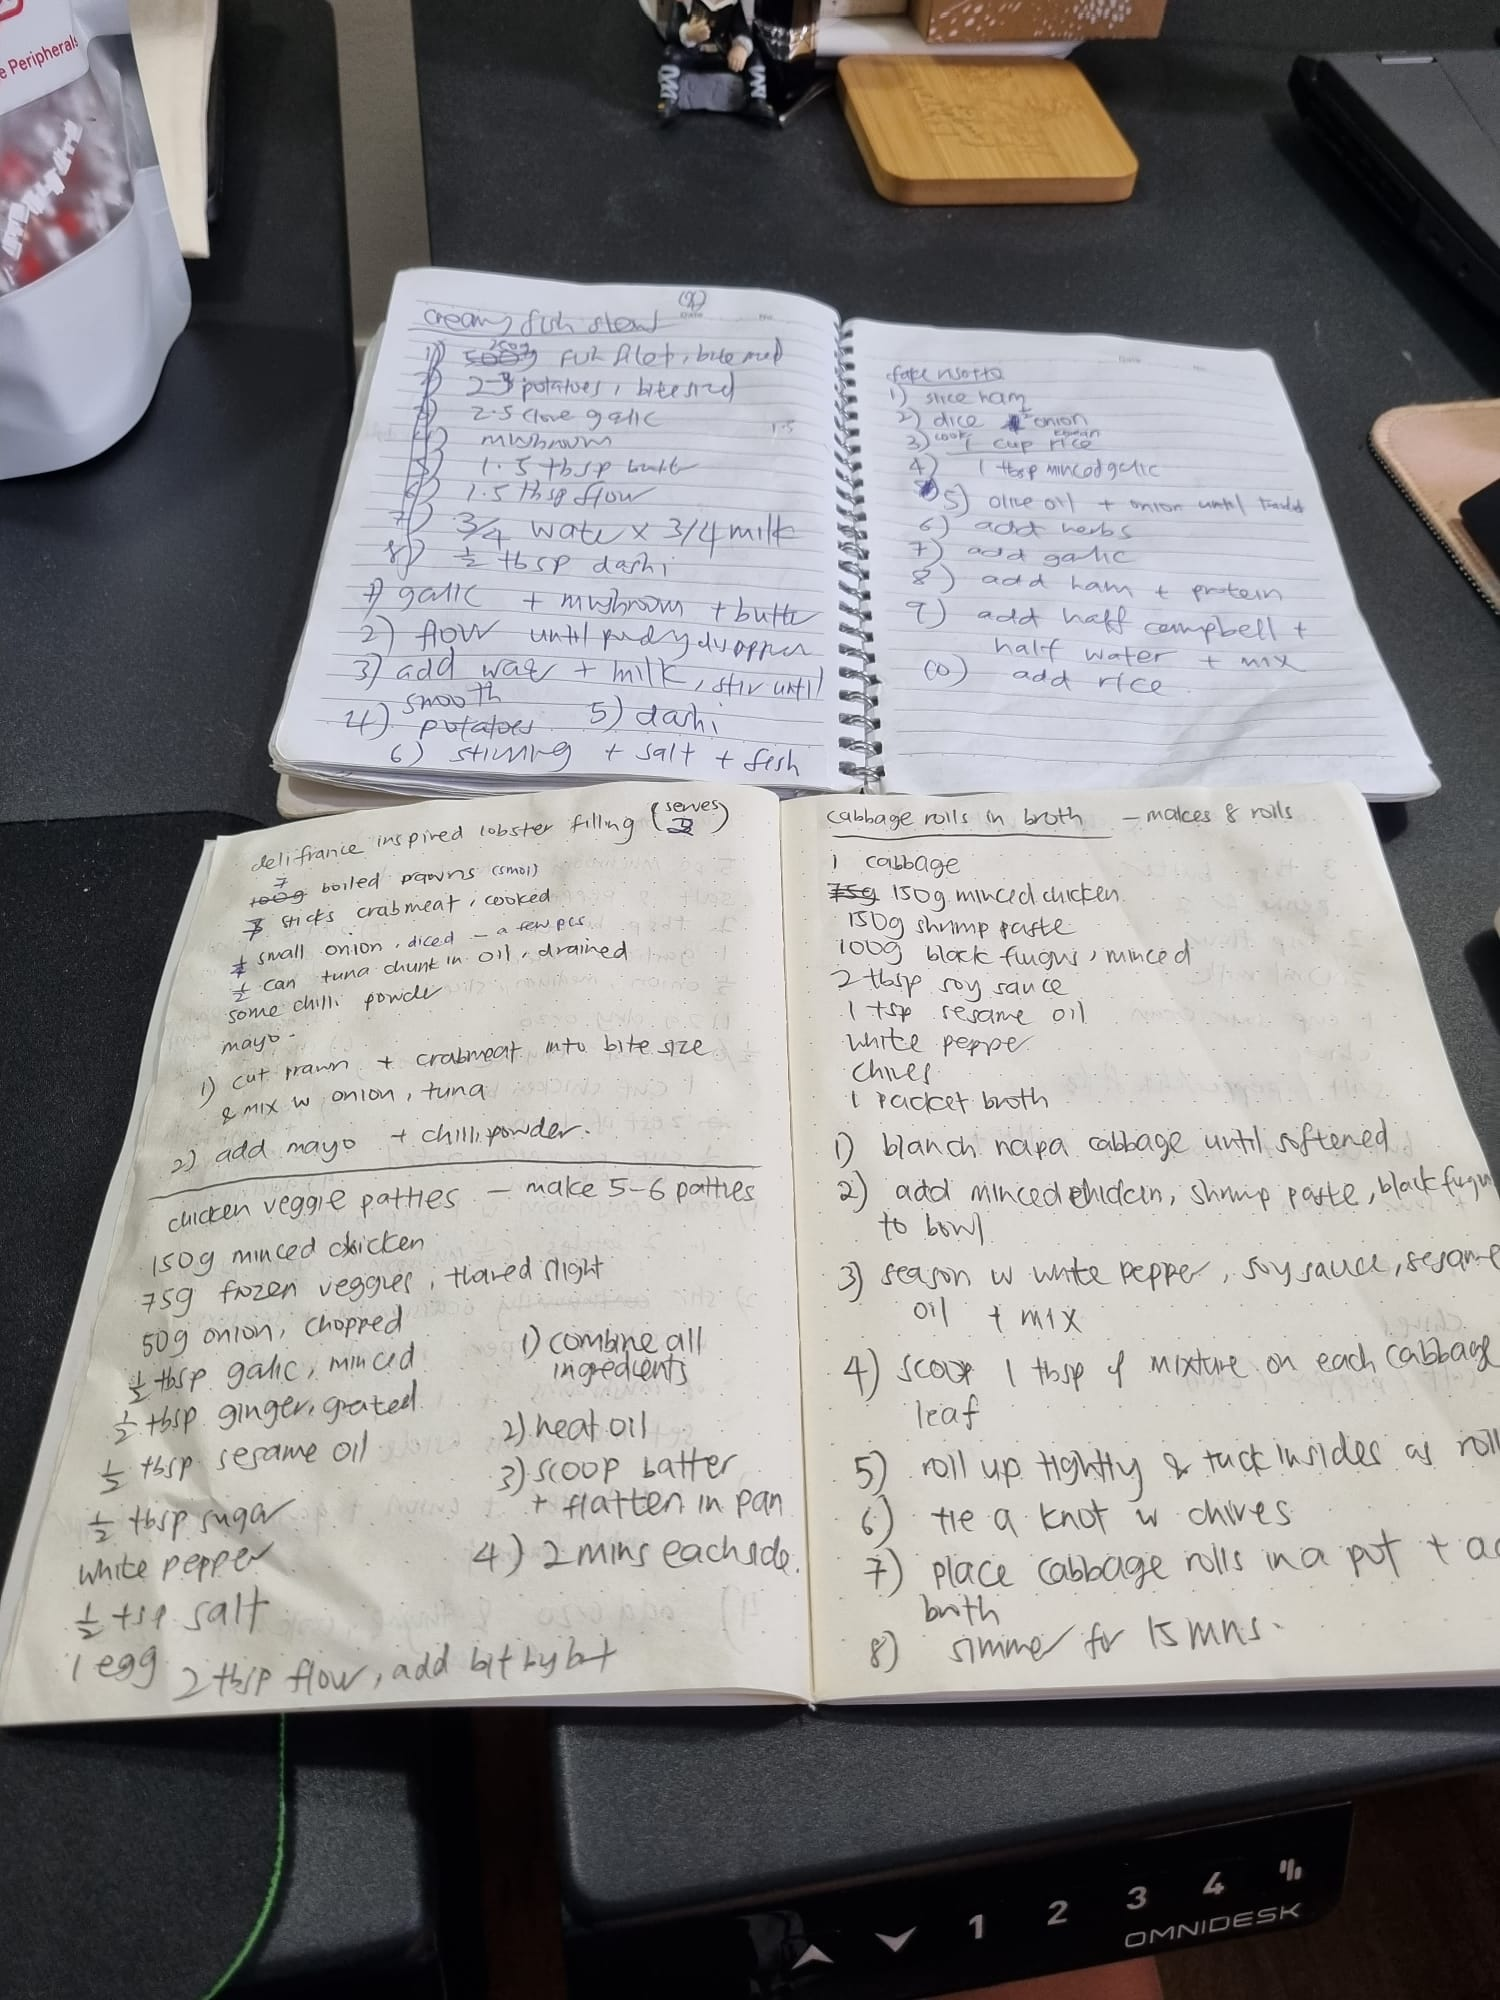 e Peripherals
creamy fish stew
1) 250g fish filet, bite sized
2) 2-3 potatoes, bite sized
3) 2.5 clove galic
4) mushroom
5) 1.5 tbsp butt
6) 1.5 tbsp flow
7) 3/4 water x 3/4 milk
8) 1/2 tbsp dashi
1) galic + mushroom + butter
2) flow until
3) add water + milk, stir until
smooth
4) potatoes 5) dashi
6) stirring + salt + fish
1.5
fake risotto
1) slice ham
2) dice 1/2 onion
3) cook 1 cup rice
4) 1 tbsp minced galic
5) olive oil + onion until
6) add herbs
7) add galic
8) add ham + protein
9) add half campbell +
half water + mix
10) add rice
delifrance inspired lobster filling (serves 2)
7 100g boiled pawns (smol)
sticks crabmeat, cooked
small onion, diced - a few pcs
1/2 can tuna chunk in oil, drained
some chilli powder
mayo.
1) cut prawn + crabmeat into bite size
& mix w onion, tuna
2) add mayo + chilli powder.
chicken veggie patties - make 5-6 patties
150g minced chicken
75g frozen veggies, thawed slight
50g onion, chopped
1/2 tbsp galic, minced
1/2 tbsp ginger, grated
1/2 tbsp sesame oil
1/2 tbsp sugar
white pepper
1/2 tsp salt
1 egg
2 tbsp flow, add bit by bit
1) combine all
ingredients
2) heat oil
3) scoop batter
+ flatten in pan
4) 2 mins each side.
cabbage rolls in broth - makes 8 rolls
1 cabbage
75g 150g minced chicken
150g shrimp paste
100g black fungus, minced
2 tbsp soy sauce
1 tsp sesame oil
white peppe
chives
1 packet broth
1) blanch napa cabbage until softened
2) add minced chicken, shrimp paste, black fugu
to bowl
3) season w white pepper, soy sauce, sesame
oil + mix
4) scoop 1 tbsp of mixture on each cabbage
leaf
5) roll up tightly & tuck insides as roll
6) tie a knot w chives
7) place cabbage rolls in a pot + a
broth
8) simmer for 15 mns.
1 2 3 4
OMNIDESK